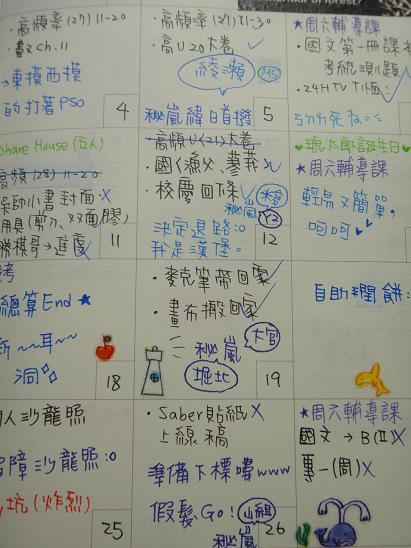 ・高頻率(27) 11-20
・數Ch.11
→東摸西摸
的打著PSO
4
・高頻率(27) 1-30
・高U20大卷
綾瀨
MS
秘嵐緯日首撥
5
★周六輔導課
・國文第一冊課
考統測題
・24H TV
Share House (五人)
高頻(28) 11-20
小書封面
用具(剪刀、双面膠)
11
高頻U(21)大卷
・國(漁父、蓼莪)
・校慶回條
秘嵐
Y2
決定退路:0
我是漢堡。
12
誕生日
★周六輔導課
輕易又簡單,
呵呵
考
總算End ★
~~耳~~
洞
18
・麥克筆帶回家
・畫布搬回家
秘嵐
大宮
堀北
19
自助潤餅:
人沙龍照
障沙龍照:0
坑(炸烈)
25
・Saber貼紙X
上線稿
準備下標嘍www
假髮Go!
山組
秘嵐
26
★周六輔導課
國文→B(II)X
專一(周)X